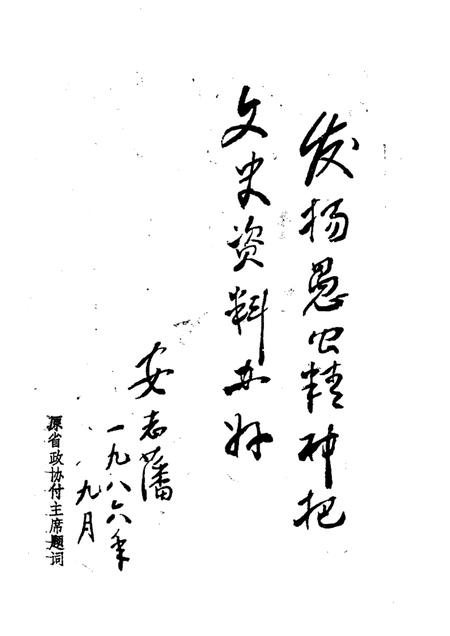 发扬愚公精神把
文史资料办好
安志藩
一九八六年
九月
原省政协付主席题词